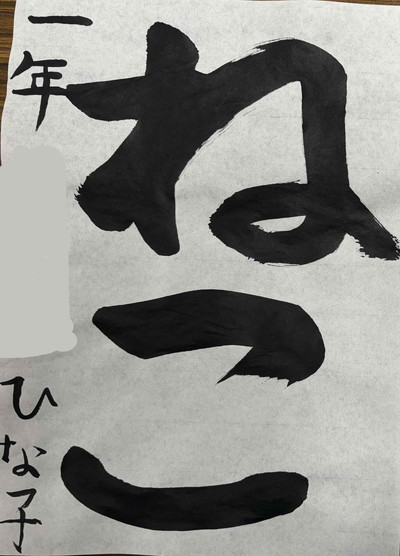 ねこ
一年
ひな子